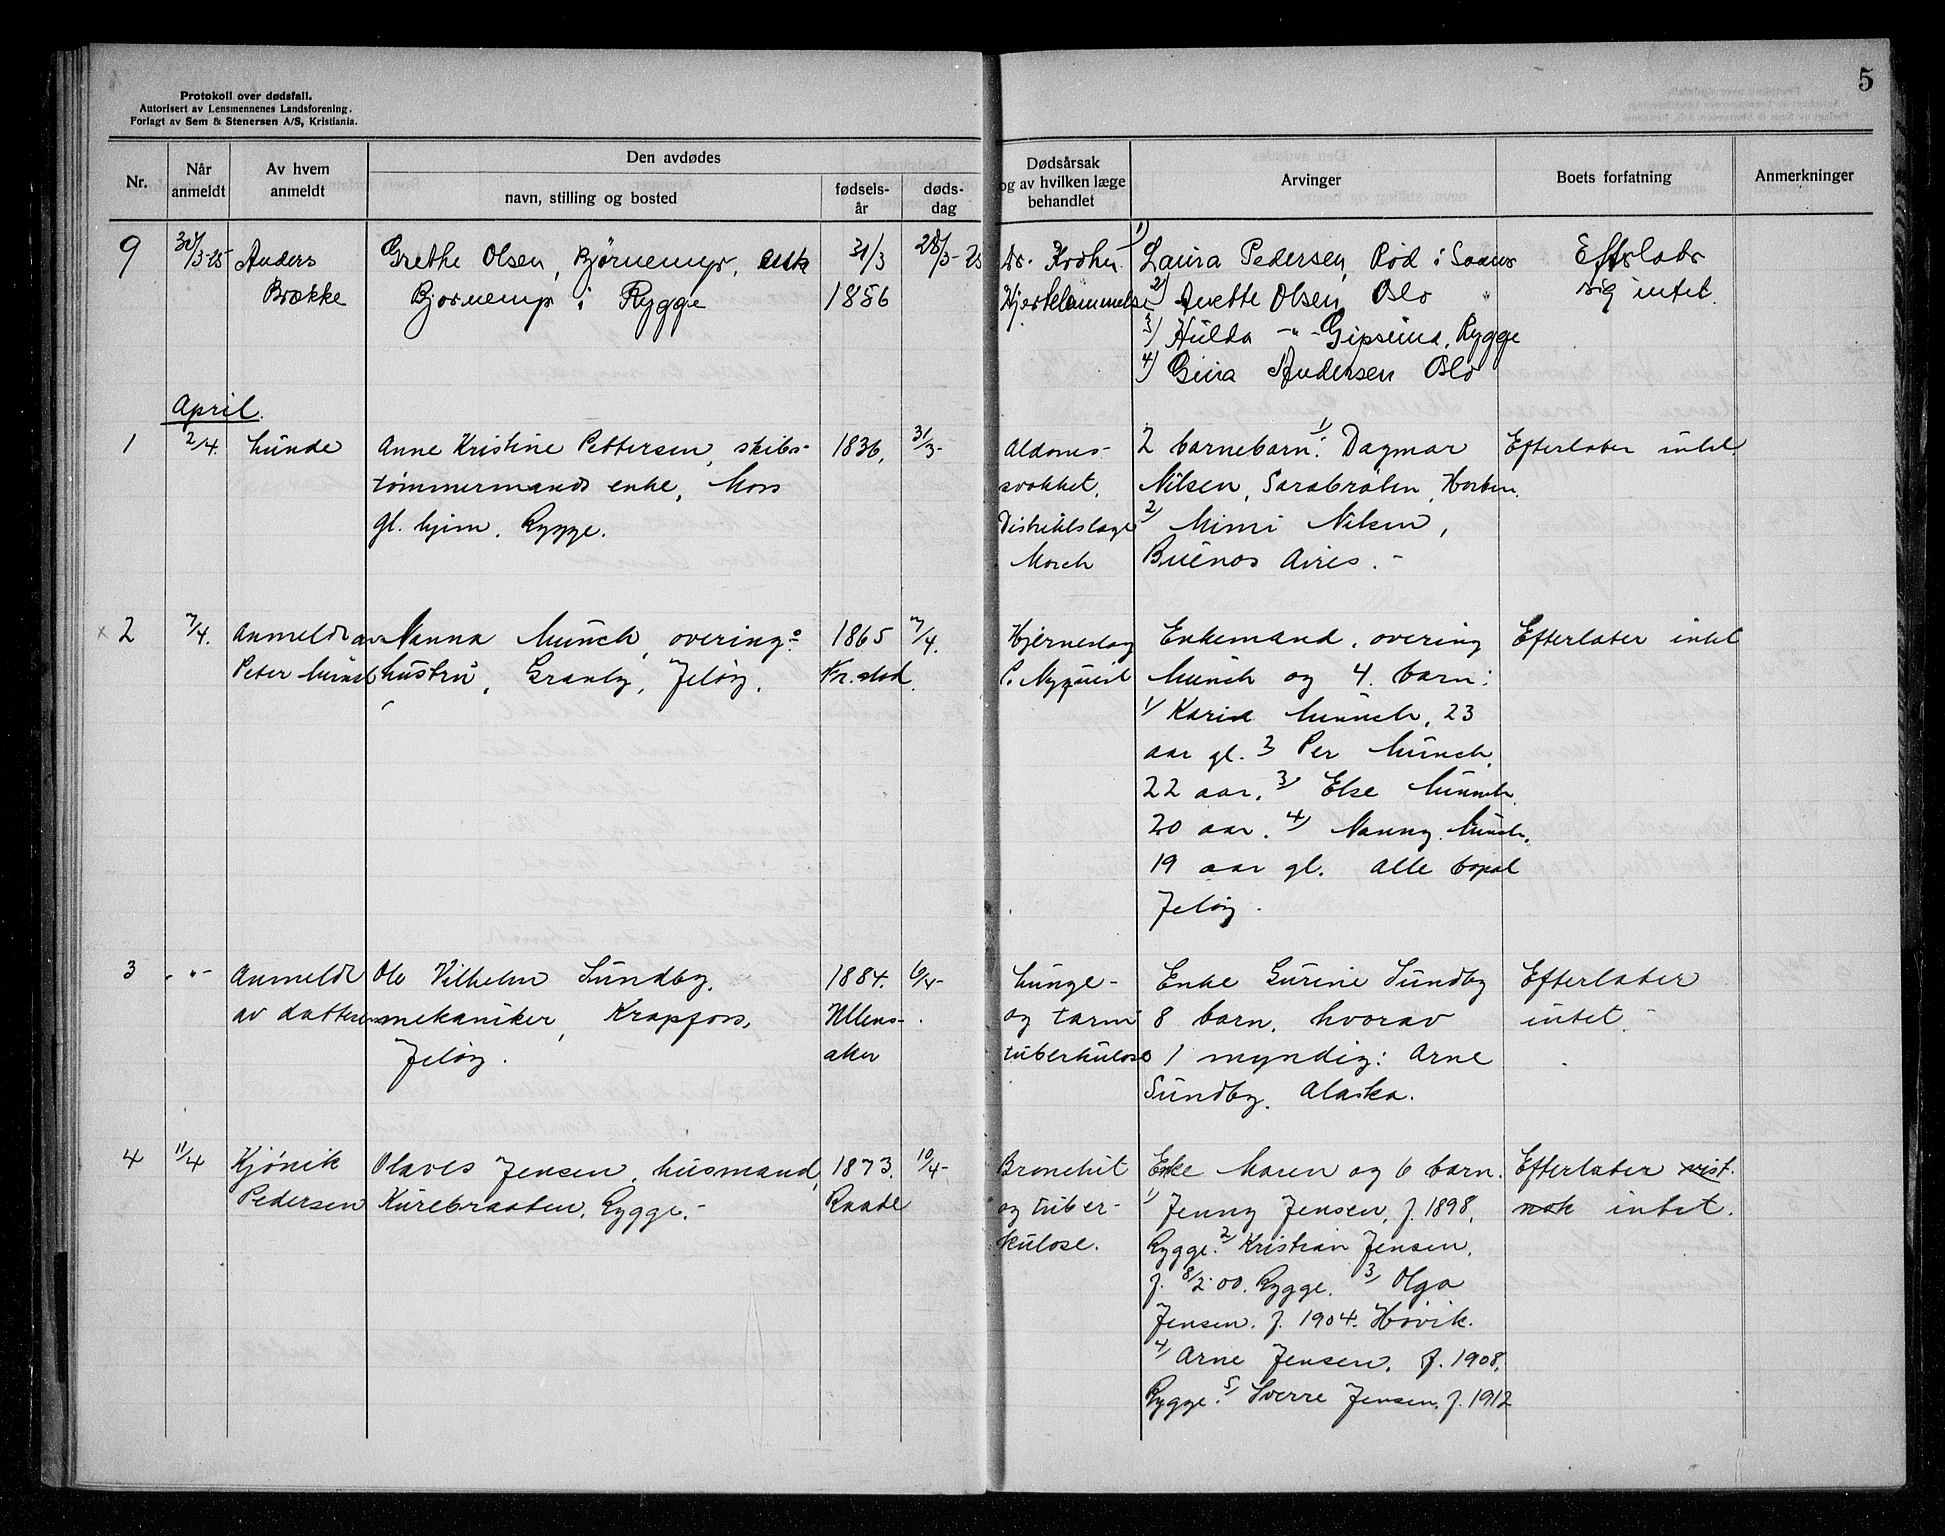 Protokoll over dødsfall.
Autorisert av Lensmennenes Landsforening.
Forlagt av Sem & Stenersen A/S, Kristiania.
5
Nr.
Når anmeldt
Av hvem anmeldt
Den avdødes
navn, stilling og bosted
fødsels-år
døds-dag
Dødsårsak og av hvilken læge behandlet
Arvinger
Boets forfatning
Anmerkninger
9
30/3-25
Anders
Brække
Grethe Olsen, Bjørnemyr, enke
Bjørnemyr i Rygge
31/3
1856
28/3-25
Dr.
Hjertelammelse
1) Laura Pedersen, Rød i Saaner
2) Anette Olsen, Oslo "
3) Hulda -"- Gipsund, Rygge
4) Gina Andersen Oslo
Efterlater
sig intet.
April.
1
2/4.
Lunde
Anne Kristine Pettersen, skibs-
tømmermands enke, Moss
gl. hjem, Rygge.
1836,
31/3-
Aldoms-
svakhet,
Distriktslæge
Morch
2 barnebarn: 1/ Dagmar
Nilsen, Sarabråten,
2/ Mimi Nilsen,
Buenos Aires. -
Efterlater intet
x 2
7/4.
Anmeldt av
Peter Munch
Nanna Munch, overing.
hustru, Granly, Jeløy,
1865
Kr.stad.
7/4.
Hjerneslag
C. Nyquist
Enkemand, overing
Munch og 4. barn:
1/ Karin Munch, 23
aar gl. 2/ Per Munch,
22 aar, 3/ Else Munch
20 aar. 4/ Nanny Munch,
19 aar gl. Alle bopæl
Jeløy.
Efterlater intet
3
- " -
Anmeldt
av datteren
Ole Vilhelm Sundby,
mekaniker, Krapfoss,
Jeløy.
1884.
Ullens-
aker
6/4-
Lunge-
og tarm
tuberkulose
Enke Gurine Sundby
8 barn, hvorav
1 myndig: Arne
Sundby, Alaska.
Efterlater
intet. -
4
11/4
Kjønik
Pedersen
Olaves Jensen, husmand,
Kurebraaten, Rygge. -
1873.
Raade
10/4-
Bronchit
og tuber-
kulose.
Enke Maren og 6 barn.
1/ Jenny Jensen, f. 1898,
Rygge. 2/ Kristian Jensen,
f. 8/2 00. Rygge. 3/ Olga
Jensen. f. 1904. Høvik.
4/ Arne Jensen, f. 1908,
Rygge. 5/ Sverre Jensen, f. 1912
Efterlater vist-
nok intet.